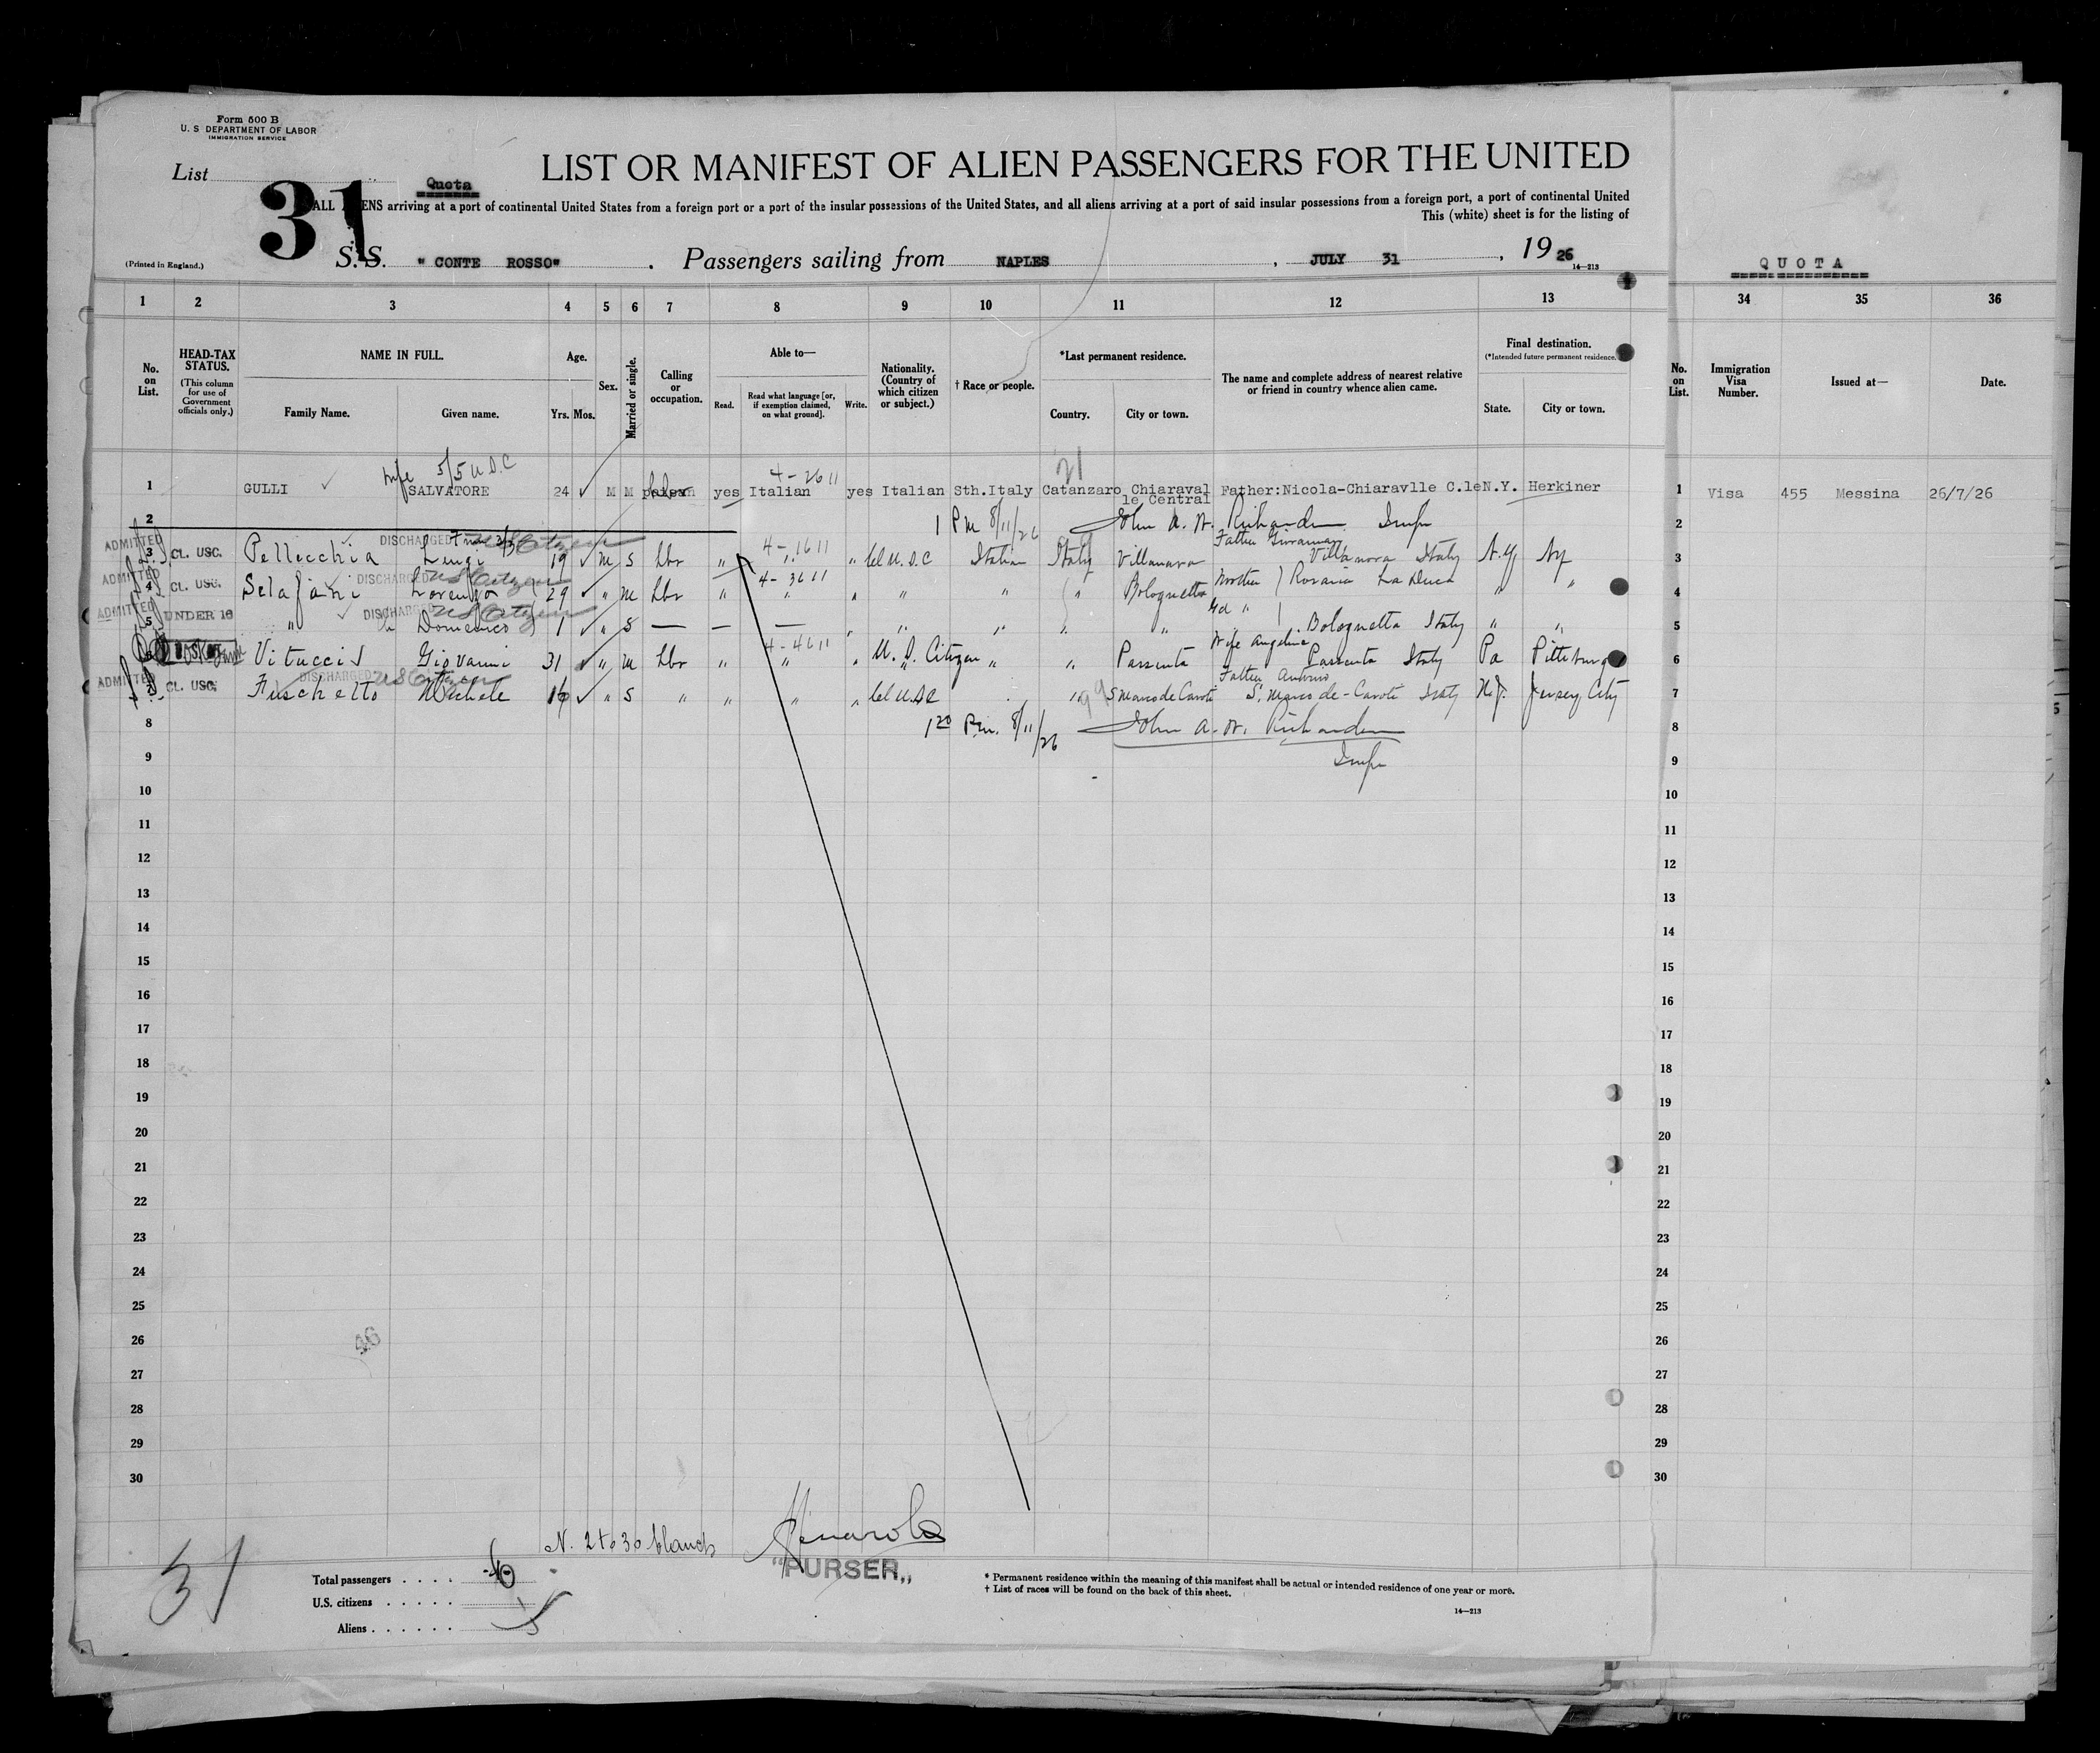 Form 500 B
U. S DEPARTMENT OF LABOR
IMMIGRATION SERVICE
List
31
Quota
LIST OR MANIFEST OF ALIEN PASSENGERS FOR THE UNITED
ALL ALIENS arriving at a port of continental United States from a foreign port or a port of the insular possessions of the United States, and all aliens arriving at a port of said insular possessions from a foreign port, a port of continental United
This (white) sheet is for the listing of
(Printed in England.)
S. S. " CONTE ROSSO" . Passengers sailing from NAPLES , JULY 31 , 19 26
14—213
QUOTA
1 2 3 4 5 6 7 8 9 10 11 12 13 34 35 36
No. on List.
HEAD-TAX STATUS.
(This column for use of Government officials only.)
NAME IN FULL.
Family Name. Given name.
Age.
Yrs. Mos.
Sex.
Married or single.
Calling or occupation.
Able to—
Read. Read what language [or, if exemption claimed, on what ground]. Write.
Nationality. (Country of which citizen or subject.)
† Race or people.
*Last permanent residence.
Country. City or town.
The name and complete address of nearest relative or friend in country whence alien came.
Final destination.
(*Intended future permanent residence.)
State. City or town.
No. on List.
Immigration Visa Number.
Issued at—
Date.
wife 5/5 U.S.C 4-2611 21
1 GULLI SALVATORE 24 M M yes Italian yes Italian Sth.Italy Catanzaro Chiaraval Father:Nicola-Chiaravlle C.le N.Y. Herkiner 1 Visa 455 Messina 26/7/26
le Central
2 1 Pm 8/11/26 John A. W. Richardson Insp 2
ADMITTED DISCHARGED US Citizen 4-1611 Father Giovanni
3 CL. USC. Pellecchia Luigi 19 M S Lbr " " " Cl U.S.C Italian Italy Villanova Villanova Italy N.Y Ny 3
ADMITTED DISCHARGED US Citizen 4-3611
4 CL. USC. Selafani Lorenzo 29 " M Lbr " " " " " " Bolognetta Mother Rosaria La Duca " " 4
ADMITTED DISCHARGED US Citizen
5 UNDER 16 " Domenico 1 " S — — — " " " " " Gd " Bolognetta Italy " " 5
4-4611 Wife Angelina
6 Vitucci Giovanni 31 " M Lbr " " " U. S. Citizen " " Passenta Passenta Italy Pa Pittsburg 6
ADMITTED DISCHARGED US Citizen Father Antonio
7 CL. USC. Fuschetto Michele 16 " S " " " " Cl U.S.C " S Marco de Cavoti S. Marco de-Cavoti Italy N.J. Jersey City 7
8 1 20 Pm. 8/11/26 John A. W. Richardson 8
9 Insp 9
10 10
11 11
12 12
13 13
14 14
15 15
16 16
17 17
18 18
19 19
20 20
21 21
22 22
23 23
24 24
25 25
26 26
27 27
28 28
29 29
30 30
N. 2 to 30 blancs
"PURSER,,
31
Total passengers . . . .
U.S. citizens . . . . .
Aliens . . . . . .
* Permanent residence within the meaning of this manifest shall be actual or intended residence of one year or more.
† List of races will be found on the back of this sheet.
14—213